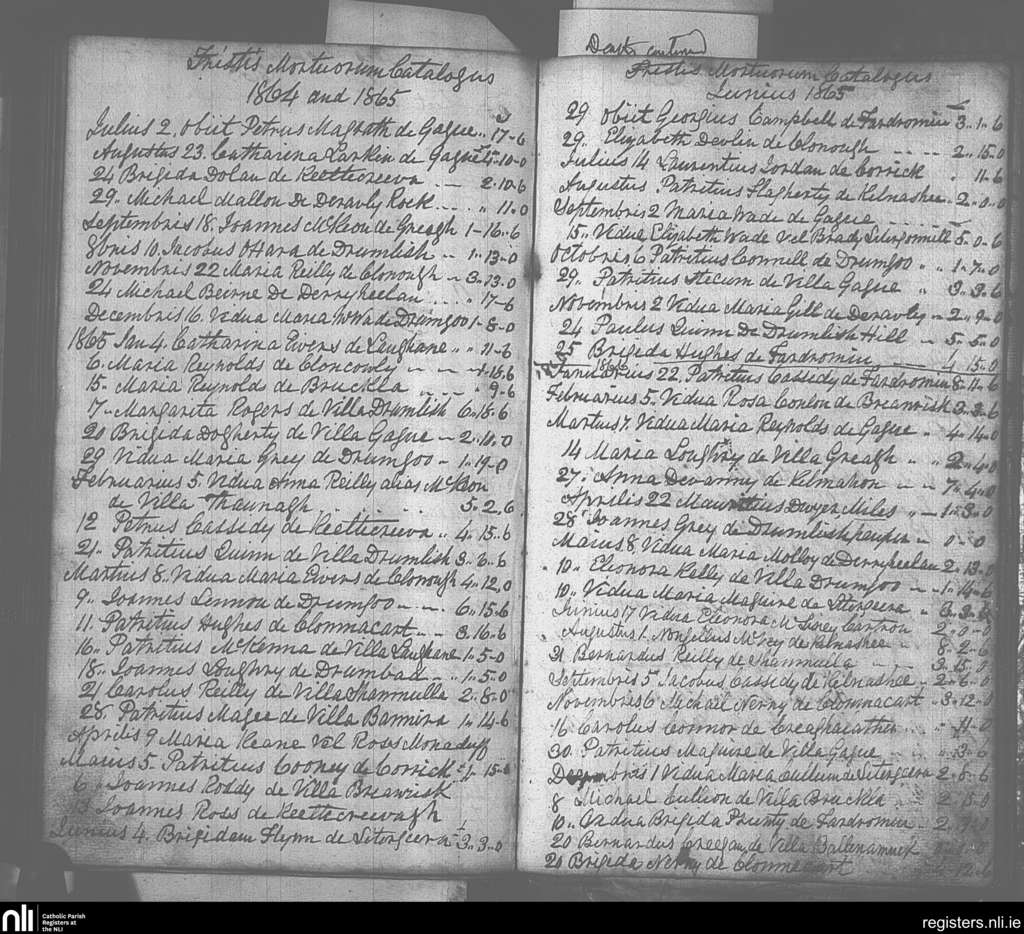 Tristis Mortuorum Catalogus
1864 and 1865
Julius 2. obiit Petrus Magrath de Gague .. 17-6
Augustus 23. Catharina Larkin de Gague 4-10-0
24 Brigida Dolan de Keelticreeva .. 2-10-6
29 .. Michael Mallon De Deravly Rock .. 11-0
Septembris 18. Joannes McKeon de Greagh 1-16-6
8bris 10. Jacobus OHara de Drumlish .. 1-13-0
Novembris 22 Maria Reilly de Clonough .. 3-13-0
24 Michael Beirne De Derryheelan .... 17-6
Decembris 16. Vidua Maria de Drumgoo 1-8-0
1865 Jan 4. Catharina Evers de Laughane .. 11-6
6. Maria Reynolds de Cloncowly
15. Maria Reynolds de Bruckla 9-6
7 .. Margarita Rogers de Villa Drumlish 6-18-6
20 Brigida Dogherty de Villa Gague .. 2-10-0
29 Vidua Maria Grey de Drumgoo .. 1-19-0
Februarius 5. Vidua Anna Reilly alias McKeon
de Villa Thaunagh 5-2-6
12 Petrus Cassidy de Keelticreeva .. 4-15-6
21 .. Patritius Quinn de Villa Drumlish 3-6-6
Martius 8. Vidua Maria Evers de Clonough 4-12-0
9 .. Joannes Lennon de Drumgoo .. 6-15-6
11. Patritius Hughes de Clonmacart .. 3-16-6
16 .. Patritius McKenna de Villa Laughane 1-5-0
18 .. Joannes Loughry de Drumbad .. 1-5-0
21 Carolus Reilly de Villa Shanmulla 2-8-0
28. Patritius Magee de Villa Bannira 1-14-6
Aprilis 9 Maria Keane Vel Ross Monaduff
Maius 5. Patritius Cooney de Corrick 15-6
6 Joannes Roddy de Villa Breanrisk
13 Joannes Ross de Keelticreevagh
Junius 4. Brigidam Flynn de Litorgeera 3-3-0
Deaths continued
Tristis Mortuorum Catalogus
Junius 1865
29 obiit Georgius Campbell de Fardromin 3-1-6
29 .. Elizabeth Devlin de Clonough .... 2-15-0
Julius 14 Laurentius Jordan de Corrick 11-6
Augustus. Patritius Flagherty de Kilnashee 2-0-0
Septembris 2 Maria Wade de Gague
15 .. Vidua Elizabeth Wade Vel Brady 5-0-6
Octobris 6 Patritius Connell de Drumgoo .. 1-7-0
29 .. Patritius Slecum de Villa Gague .. 3-3-6
Novembris 2 Vidua Maria Gill de Deravley .. 2-9-0
24 Paulus Quinn De Drumlish Hill .. 5-5-0
25 Brigida Hughes de Fardromin 4-15-0
Januarius 22. Patritius Cassidy de Fardromin 8-11-6
Februarius 5. Vidua Rosa Conlon de Breanrisk 3-3-6
Martius 7. Vidua Maria Reynolds de Gague .. 4-14-0
14 Maria Loughry de Villa Greagh .. 2-4-0
27 .. Anna Devanny de Kilmahon .. 7-4-0
Aprilis 22 Mauritius Dwyer Miles .. 1-3-0
28 Joannes Grey de Drumlish pauper .. 0-0-0
Maius 8 Vidua Maria Molloy de Derryheelan 2-13-0
10 .. Eleonora Kelly de Villa Drumgoo .. 1-14-6
19 .. Vidua Maria Maguire de
Junius 17 Vidua Eleonora Cartron 2-0-0
Augustus 1. McVey de Kilnashee 8-2-6
31 Bernardus Reilly de Shanmulla
Septembris 5 Jacobus Cassidy de Kilnashee 2-6-0
Novembris 6 Michael Nerny de Clonmacart 3-12-0
16 Carolus Connor de 11-0
30. Patritius Maguire de Villa Gague 13-6
Decembris 1 Vidua Maria Cullum de Litorgeera 2-8-6
8 Michael Cullion de Villa Bruckla 2-15-0
10 .. Vidua Brigida Prunty de Fardromin
20 Bernardus Creegan de Villa Ballenamuck
20 Brigida Nerny de Clonmacart
nli Catholic Parish
Registers at
the NLI
registers.nli.ie